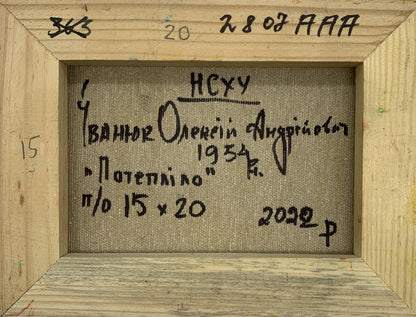 363 20 2807 AAA
НСХУ
Іванюк Олексій Андрійович
1954 р.
"Потепліло"
п/о 15 х 20
2022
р
15